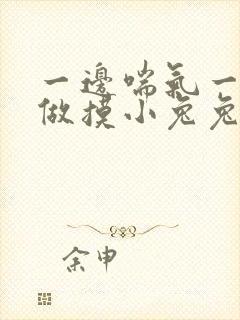 一邊喘氣一
做摸小兔兔
余申